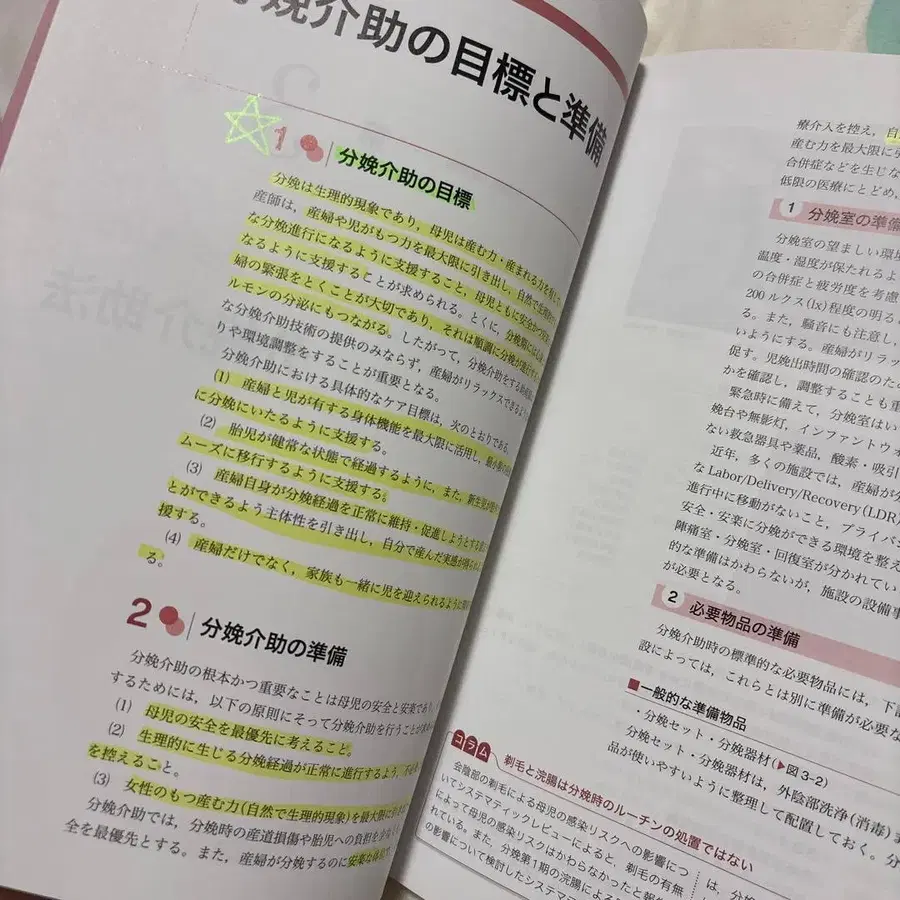 分娩介助の目標と準備
1 分娩介助の目標
分娩は生理的現象であり，母児は産む力・産まれる力を有して
産師は，産婦や児がもつ力を最大限に引き出し，自然で
な分娩進行になるように支援すること，母児ともに安全かつ
なるように支援することが求められる。とくに，分娩期に
婦の緊張をとくことが大切であり，それは順調に分娩が進行
ルモンの分泌にもつながる。したがって，分娩介助をする
な分娩介助技術の提供のみならず，産婦がリラックスできる
りや環境調整をすることが重要となる。
分娩介助における具体的なケア目標は，次のとおりである。
(1) 産婦と児が有する身体機能を最大限に活用し，最小限の
に分娩にいたるように支援する。
(2) 胎児が健常な状態で経過するように，また，新生児が
ムーズに移行するように支援する。
(3) 産婦自身が分娩経過を正常に維持・促進しようとする
とができるよう主体性を引き出し，自分で産んだ実感が得られる
援する。
(4) 産婦だけでなく，家族も一緒に児を迎えられるように
る。
2 分娩介助の準備
分娩介助の根本かつ重要なことは母児の安全と安楽であり，
するためには，以下の原則にそって分娩介助を行うことが
(1) 母児の安全を最優先に考えること。
(2) 生理的に生じる分娩経過が正常に進行するよう，
を控えること。
(3) 女性のもつ産む力(自然で生理的現象)を最大限に
分娩介助では，分娩時の産道損傷や胎児への負担を少なく
全を最優先とする。また，産婦が分娩するのに安楽な体位
療介入を控え，自
産む力を最大限に引
合併症などを生じな
低限の医療にとどめ，
1 分娩室の準備
分娩室の望ましい環
温度・湿度が保たれるよ
の合併症と疲労度を考慮
200 ルクス(lx)程度の明る
る。また，騒音にも注意し，
いようにする。産婦がリラッ
促す。児娩出時間の確認のた
かを確認し，調整することも重
緊急時に備えて，分娩室はい
娩台や無影灯，インファントウォ
ない救急器具や薬品，酸素・吸引
近年，多くの施設では，産婦が分
な Labor/Delivery/Recovery(LDR)
進行中に移動がないこと，プライバシ
安全・安楽に分娩ができる環境を整え
陣痛室・分娩室・回復室が分かれてい
的な準備はかわらないが，施設の設備事
が必要となる。
2 必要物品の準備
分娩介助時の標準的な必要物品には，下記
設によっては，これらとは別に準備が必要な
■一般的な準備物品
・分娩セット・分娩器材(▶図3-2)
分娩セット・分娩器材は，外陰部洗浄(消毒)
品が使いやすいように整理して配置しておく。分
コラム 剃毛と浣腸は分娩時のルーチンの処置ではない
会陰部の剃毛による母児の感染リスクへの影響につ
いてシステマティックレビューによると，剃毛の有無
によって母児の感染リスクはかわらなかったと報
れている。また，分娩第1期の浣腸による
の影響について検討したシステマ
は，分娩